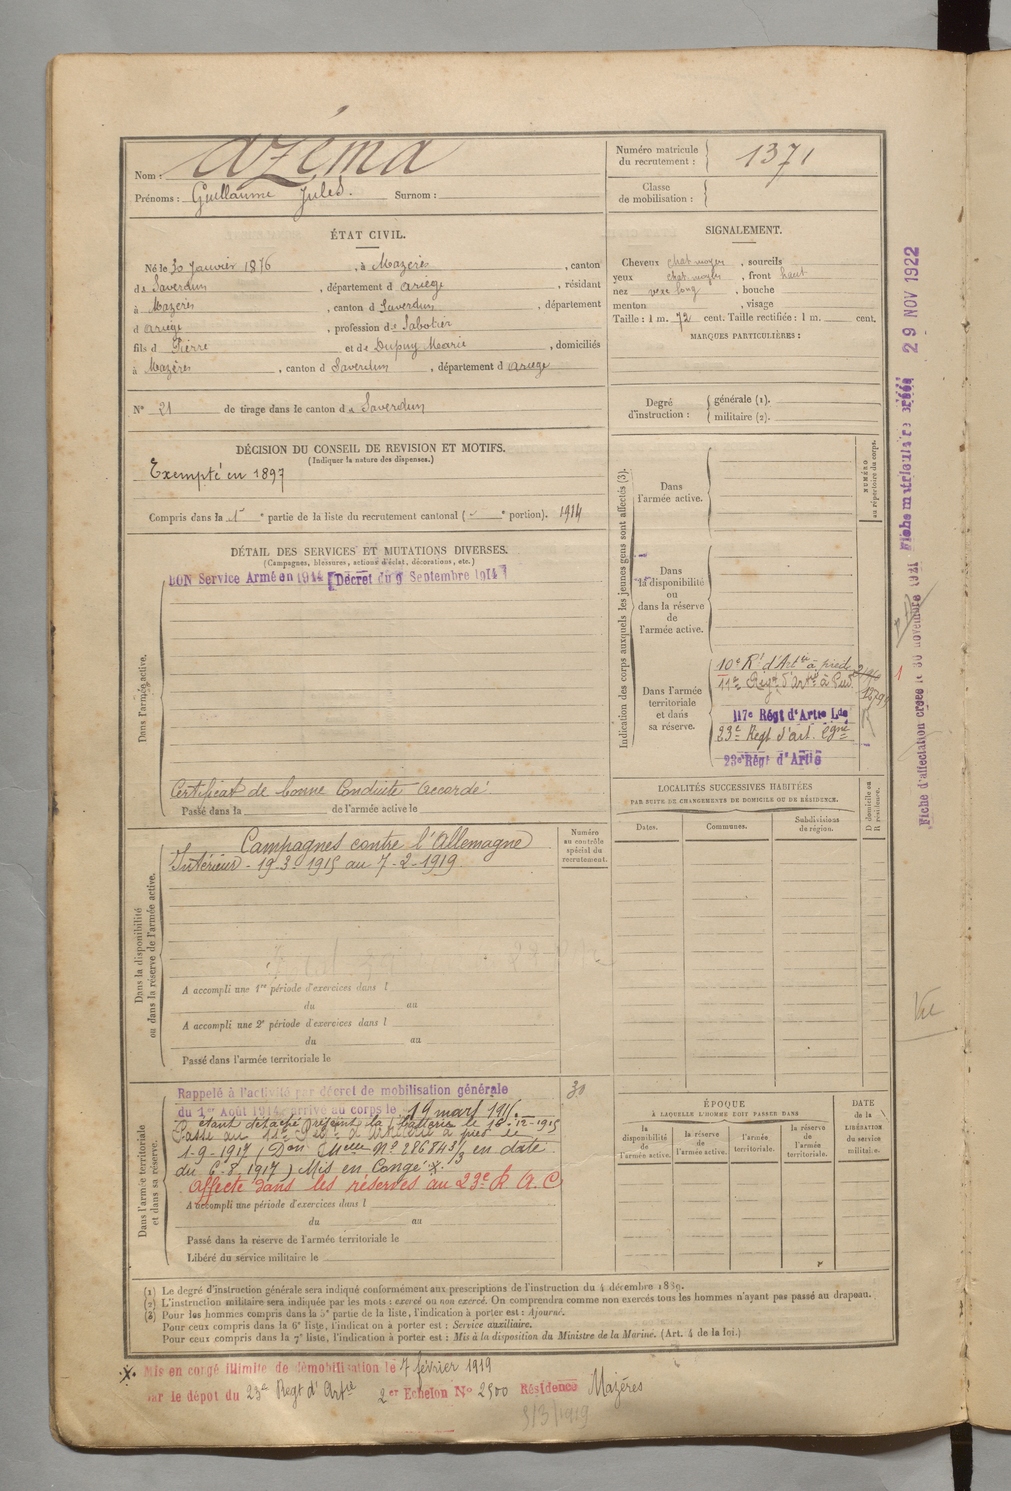 Nom : Azéma
Prénoms : Guillaume Jules. Surnom :
Numéro matricule du recrutement : 1371
Classe de mobilisation :
ÉTAT CIVIL.
Né le 30 Janvier 1876, à Mazères, canton
de Saverdun, département d Ariège, résidant
à Mazères, canton d Saverdun, département
d Ariège, profession de Sabotier
fils d Pierre et de Dupuy Marie, domiciliés
à Mazères, canton d Saverdun, département d Ariège
N° 21 de tirage dans le canton de Saverdun
SIGNALEMENT.
Cheveux chat moyen, sourcils
yeux chat. moyen, front haut
nez vexe long, bouche
menton, visage
Taille : 1 m. 72 cent. Taille rectifiée : 1 m. cent.
MARQUES PARTICULIÈRES :
Degré d'instruction : générale (1).
militaire (2).
DÉCISION DU CONSEIL DE REVISION ET MOTIFS.
(Indiquer la nature des dispenses.)
Exempté en 1897
Compris dans la 1e partie de la liste du recrutement cantonal ( e portion). 1914
DÉTAIL DES SERVICES ET MUTATIONS DIVERSES.
(Campagnes, blessures, actions d'éclat, décorations, etc.)
Dans l'armée active.
BON Service Armé en 1914 [Décret du 9 Septembre 1914]
Certificat de bonne Conduite Accordé
Passé dans la de l'armée active le
Dans la disponibilité ou dans la réserve de l'armée active.
Numéro au contrôle spécial du recrutement.
Campagnes contre l'Allemagne
Intérieur - 19-3-1915 au 7-2-1919
A accompli une 1re période d'exercices dans l
du au
A accompli une 2e période d'exercices dans l
du au
Passé dans l'armée territoriale le
Dans l'armée territoriale et dans sa réserve.
Rappelé à l'activité par décret de mobilisation générale
30
du 1er Août 1914, arrivé au corps le 19 mars 1915.
étant détaché rejoint la batterie le 16-12-1915
Passé au 11e Régt d'Artillerie à pied le
1-9-1917 (Don Melle N° 286843 1/3 en date
du 6-8-1917) Mis en Congé. x.
Affecté dans les réserves au 23e R A C
A accompli une période d'exercices dans l
du au
Passé dans la réserve de l'armée territoriale le
Libéré du service militaire le
Indication des corps auxquels les jeunes gens sont affectés (3).
NUMÉRO au répertoire du corps.
Dans l'armée active.
Dans la disponibilité ou dans la réserve de l'armée active.
Dans l'armée territoriale et dans sa réserve.
10e Rt d'Artie à pied
11e Régt d'Artie à Pied
117e Régt d'Artie Lde
23e Regt d'art. Cgne
23e Régt d'Artie
LOCALITÉS SUCCESSIVES HABITÉES
PAR SUITE DE CHANGEMENTS DE DOMICILE OU DE RÉSIDENCE.
D domicile ou R résidence.
Dates. Communes. Subdivisions de région.
ÉPOQUE
À LAQUELLE L'HOMME DOIT PASSER DANS
DATE de la LIBÉRATION du service militaire.
la disponibilité de l'armée active. la réserve de l'armée active. l'armée territoriale. la réserve de l'armée territoriale.
(1) Le degré d'instruction générale sera indiqué conformément aux prescriptions de l'instruction du 4 décembre 1889.
(2) L'instruction militaire sera indiquée par les mots : exercé ou non exercé. On comprendra comme non exercés tous les hommes n'ayant pas passé au drapeau.
(3) Pour les hommes compris dans la 5e partie de la liste, l'indication à porter est : Ajourné.
Pour ceux compris dans la 6e liste, l'indication à porter est : Service auxiliaire.
Pour ceux compris dans la 7e liste, l'indication à porter est : Mis à la disposition du Ministre de la Marine. (Art. 4 de la loi.)
x. Mis en congé illimité de démobilisation le 7 février 1919
par le dépôt du 23e Regt d'Artie 2er Echelon N° 2500 Résidence Mazères
5/3/1919
Fiche d'affectation créée le 30 novembre 1921 Fiche matriculaire créée 29 NOV 1922
Vu